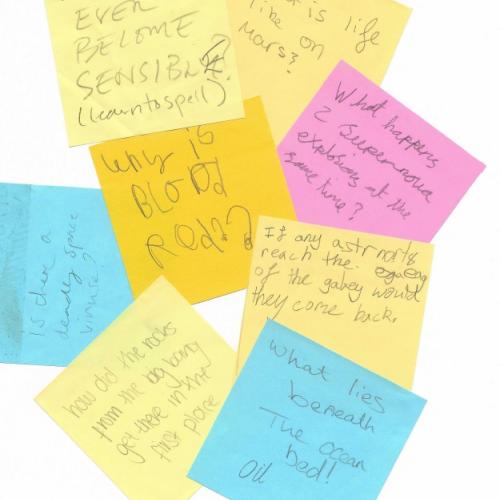 EVER
BECOME
SENSIBLE?
(learn to spell)
is life
like on
Mars?
What happens
2 Supernova
explosions at the
same time?
Why is
BLOOD
RED??
Is there a
deadly space
viruse?
If any astrnorts
reach the
of the galxey would
they come back.
how did the rocks
from the big bang
get there in the
first place
What lies
beneath
The ocean
bed!
Oil